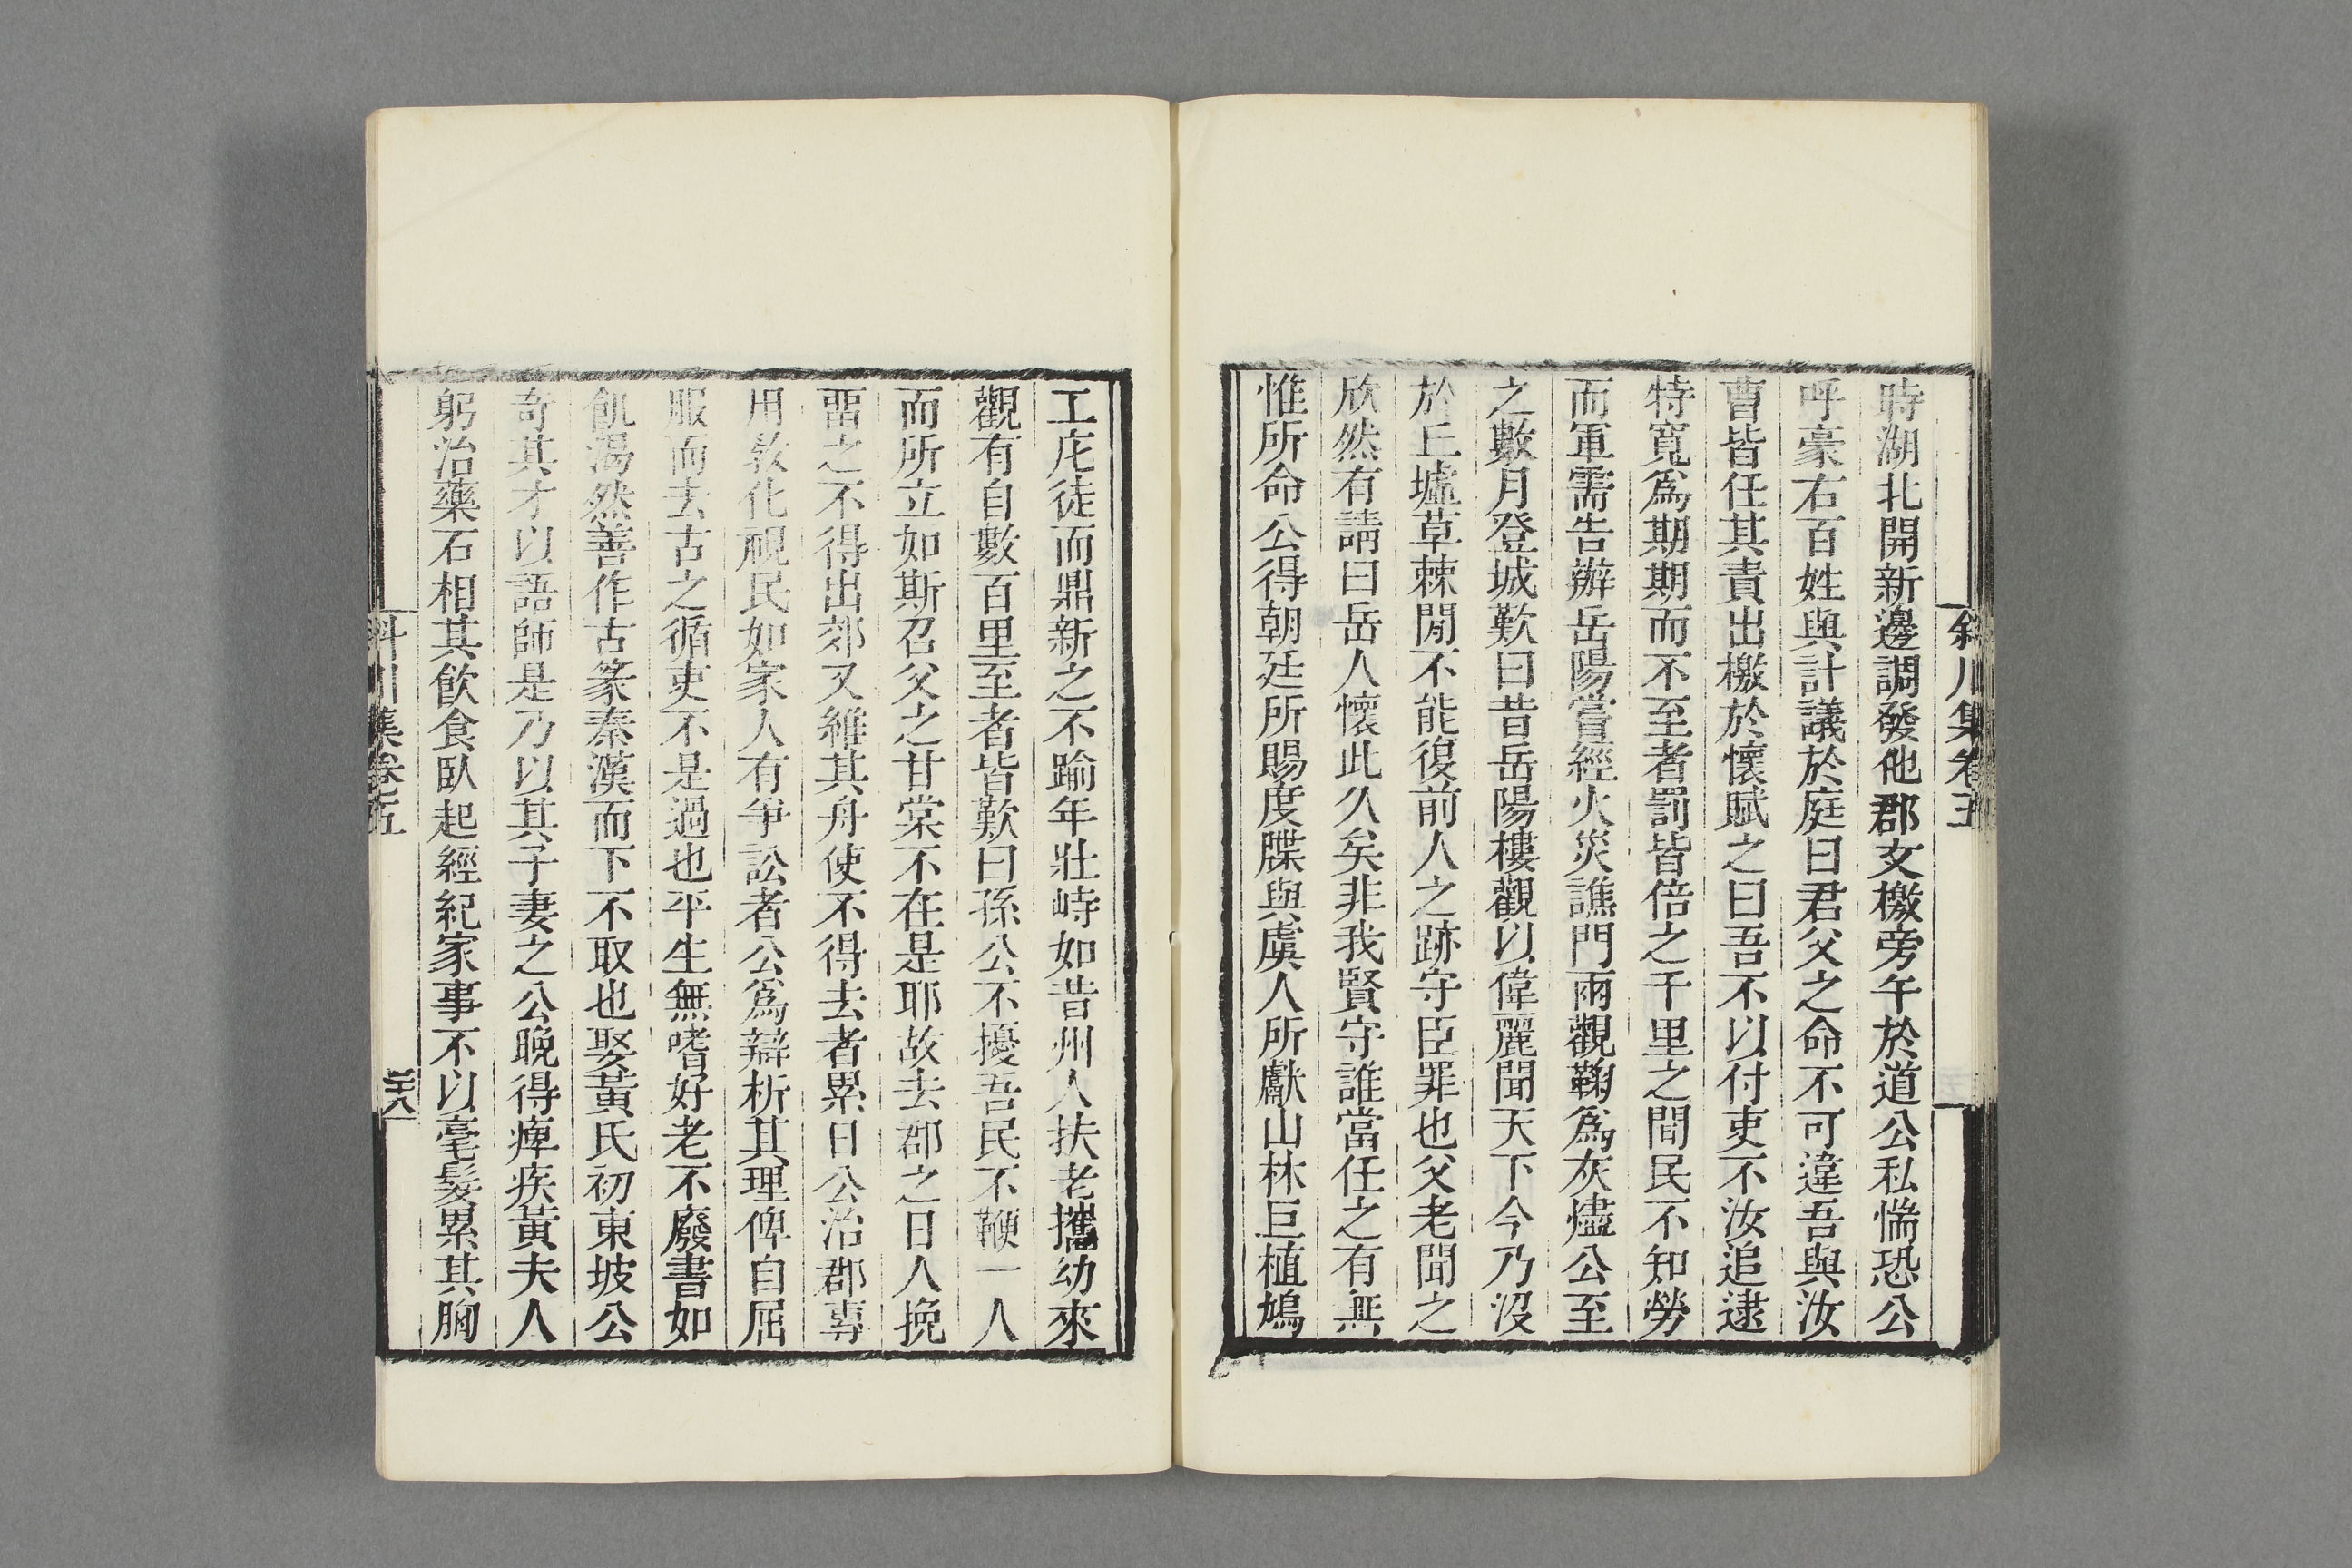 斜川集卷五
時湖北開新邊調發他郡文檄旁午於道公私惴恐公
呼豪右百姓與計議於庭曰君父之命不可違吾與汝
曹皆任其責出檄於懷賦之曰吾不以付吏不汝追逮
特寬爲期期而不至者罰皆倍之千里之間民不知勞
而軍需告辦岳陽嘗經火災譙門兩觀鞠爲灰燼公至
之數月登城歎曰昔岳陽樓觀以偉麗聞天下今乃沒
於丘墟草棘閒不能復前人之跡守臣罪也父老聞之
欣然有請曰岳人懷此久矣非我賢守誰當任之有無
惟所命公得朝廷所賜度牒與虞人所獻山林巨植鳩
工庀徒而鼎新之不踰年壯峙如昔州人扶老攜幼來
觀有自數百里至者皆歎曰孫公不擾吾民不鞭一人
而所立如斯召父之甘棠不在是耶故去郡之日人挽
畱之不得出郊又維其舟使不得去者累日公治郡專
用敎化視民如家人有爭訟者公爲辯析其理俾自屈
服而去古之循吏不是過也平生無嗜好老不廢書如
飢渴然善作古篆秦漢而下不取也娶黃氏初東坡公
奇其才以語師是乃以其子妻之公晚得痺疾黃夫人
躬治藥石相其飲食臥起經紀家事不以毫髮累其胸
斜川集卷五
二十八